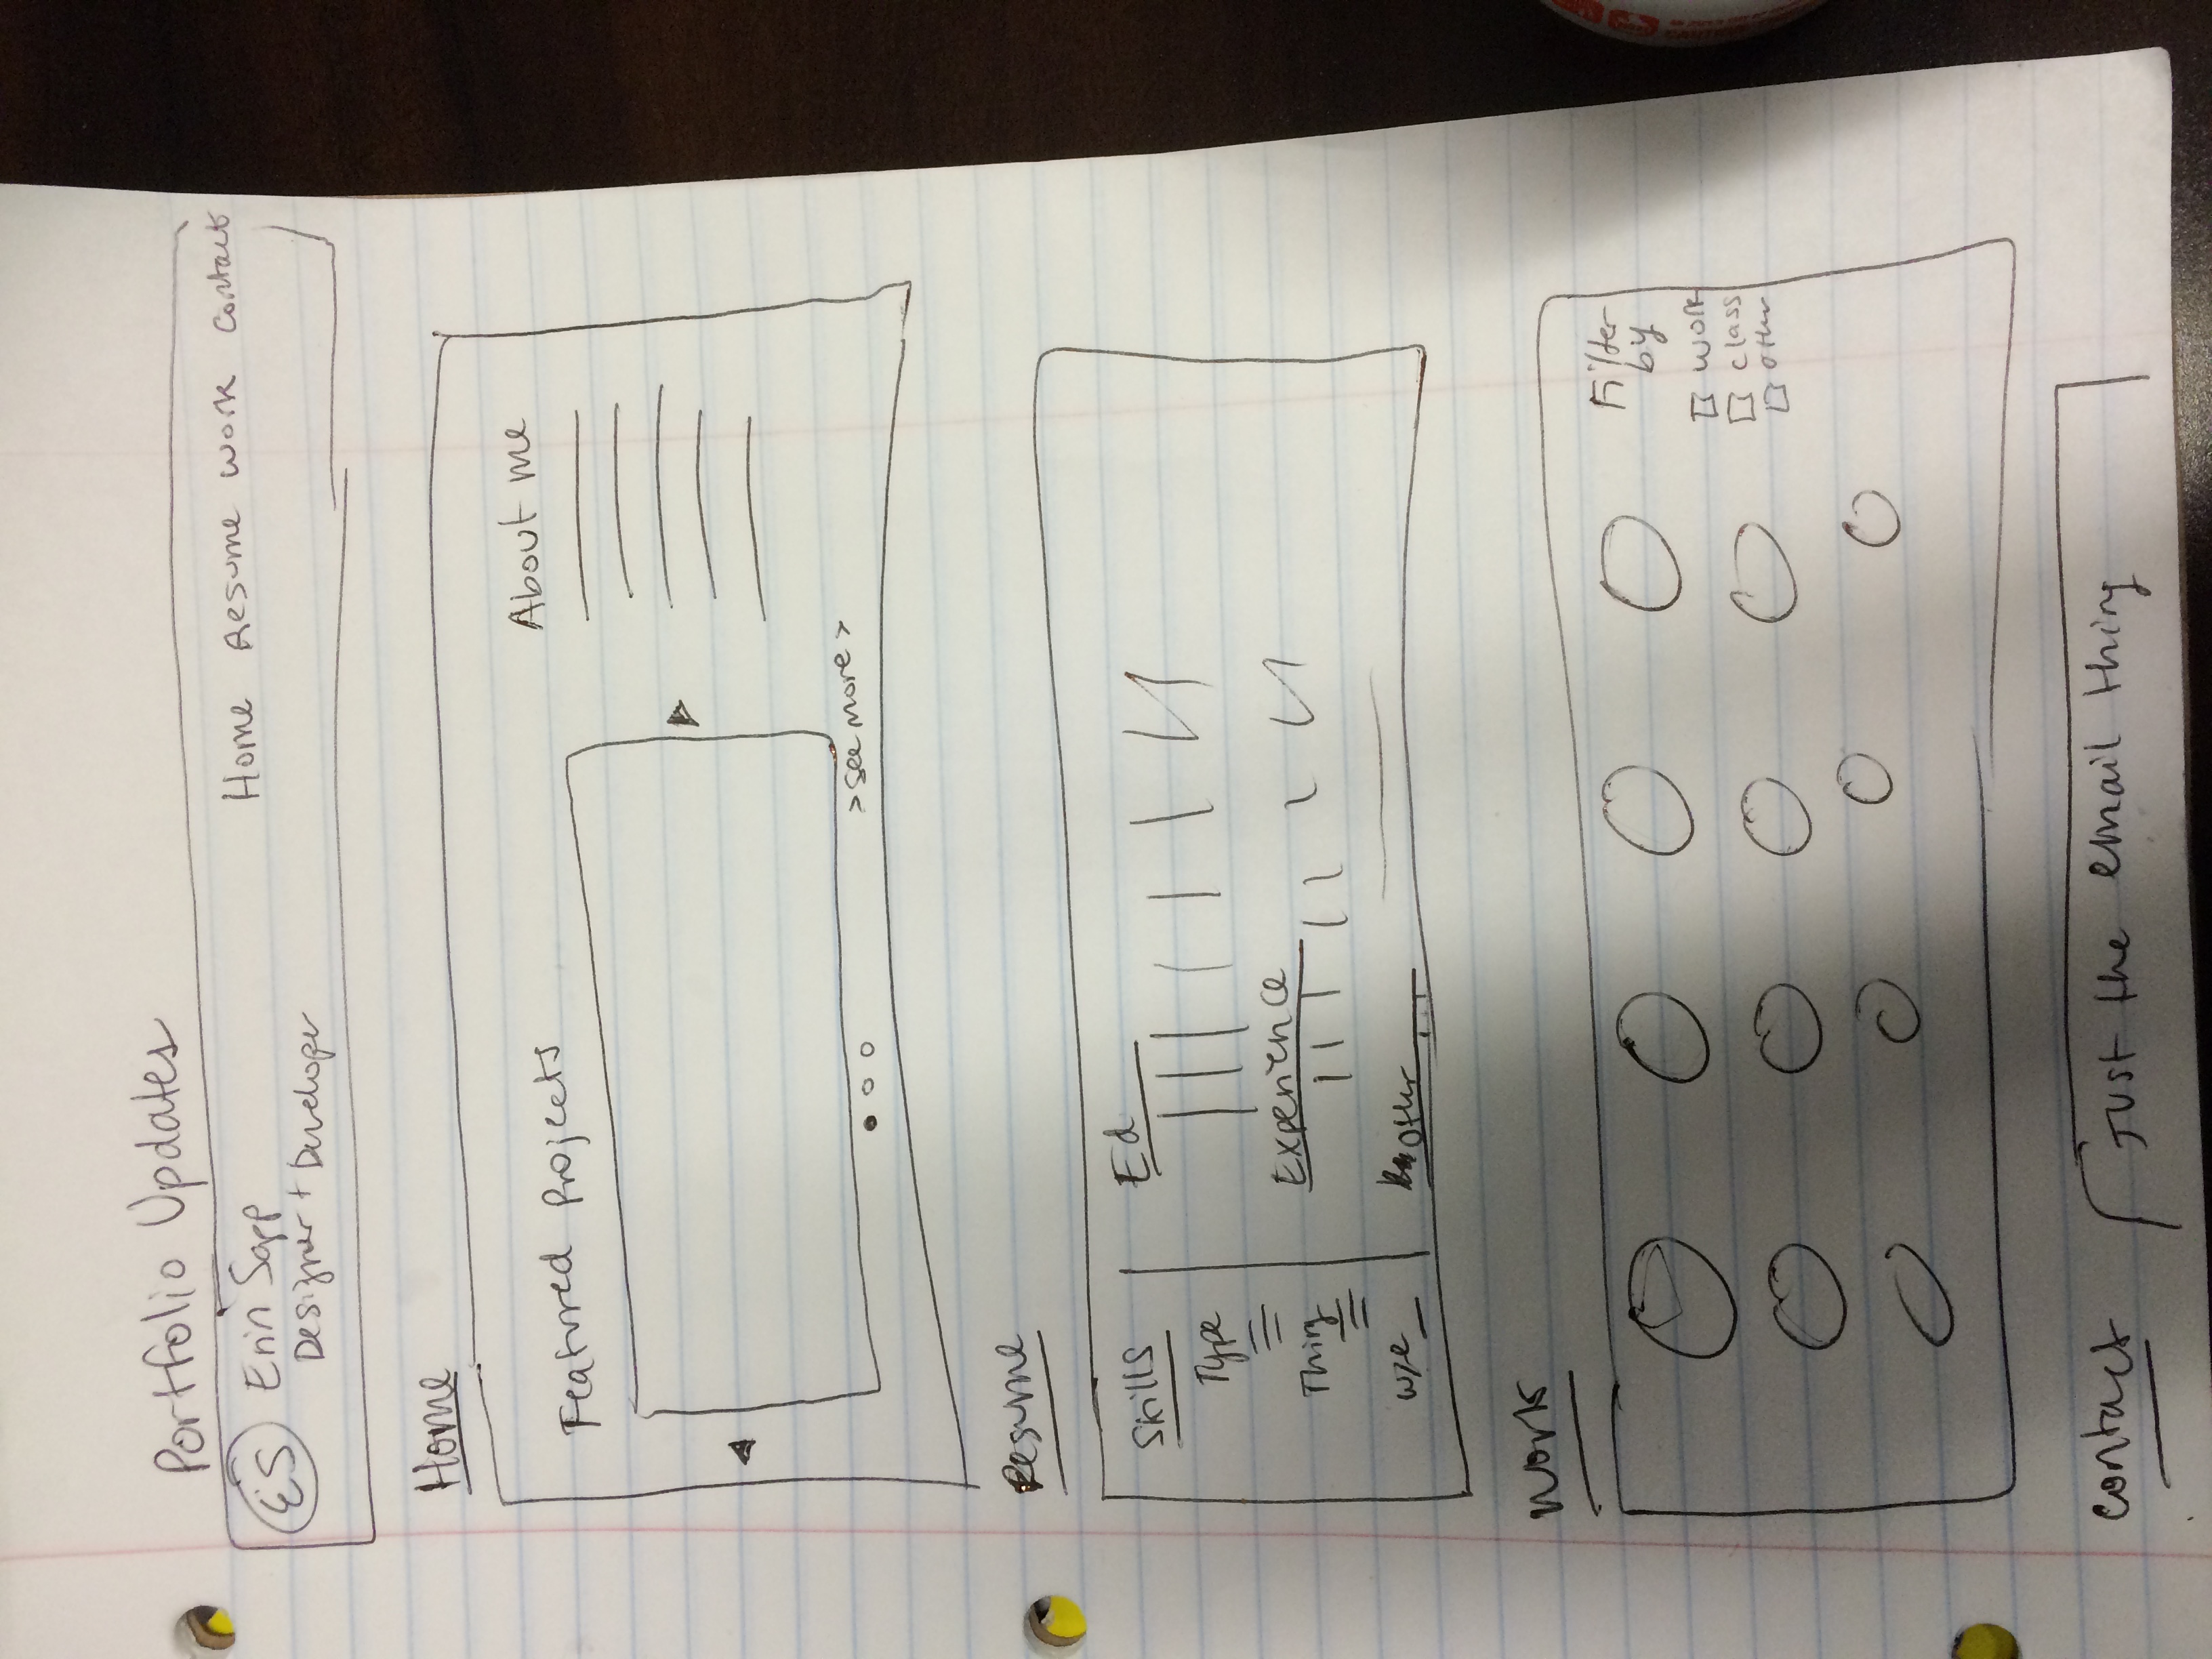 Portfolio Updates
ES
Erin Sapp
Designer + Developer
Home Resume Work Contact
Home
Featured Projects
About me
>see more>
Resume
Skills
Type
Thing
Ed
Experience
Other
Work
Filter
by
work
class
other
Contact
Just the email thing